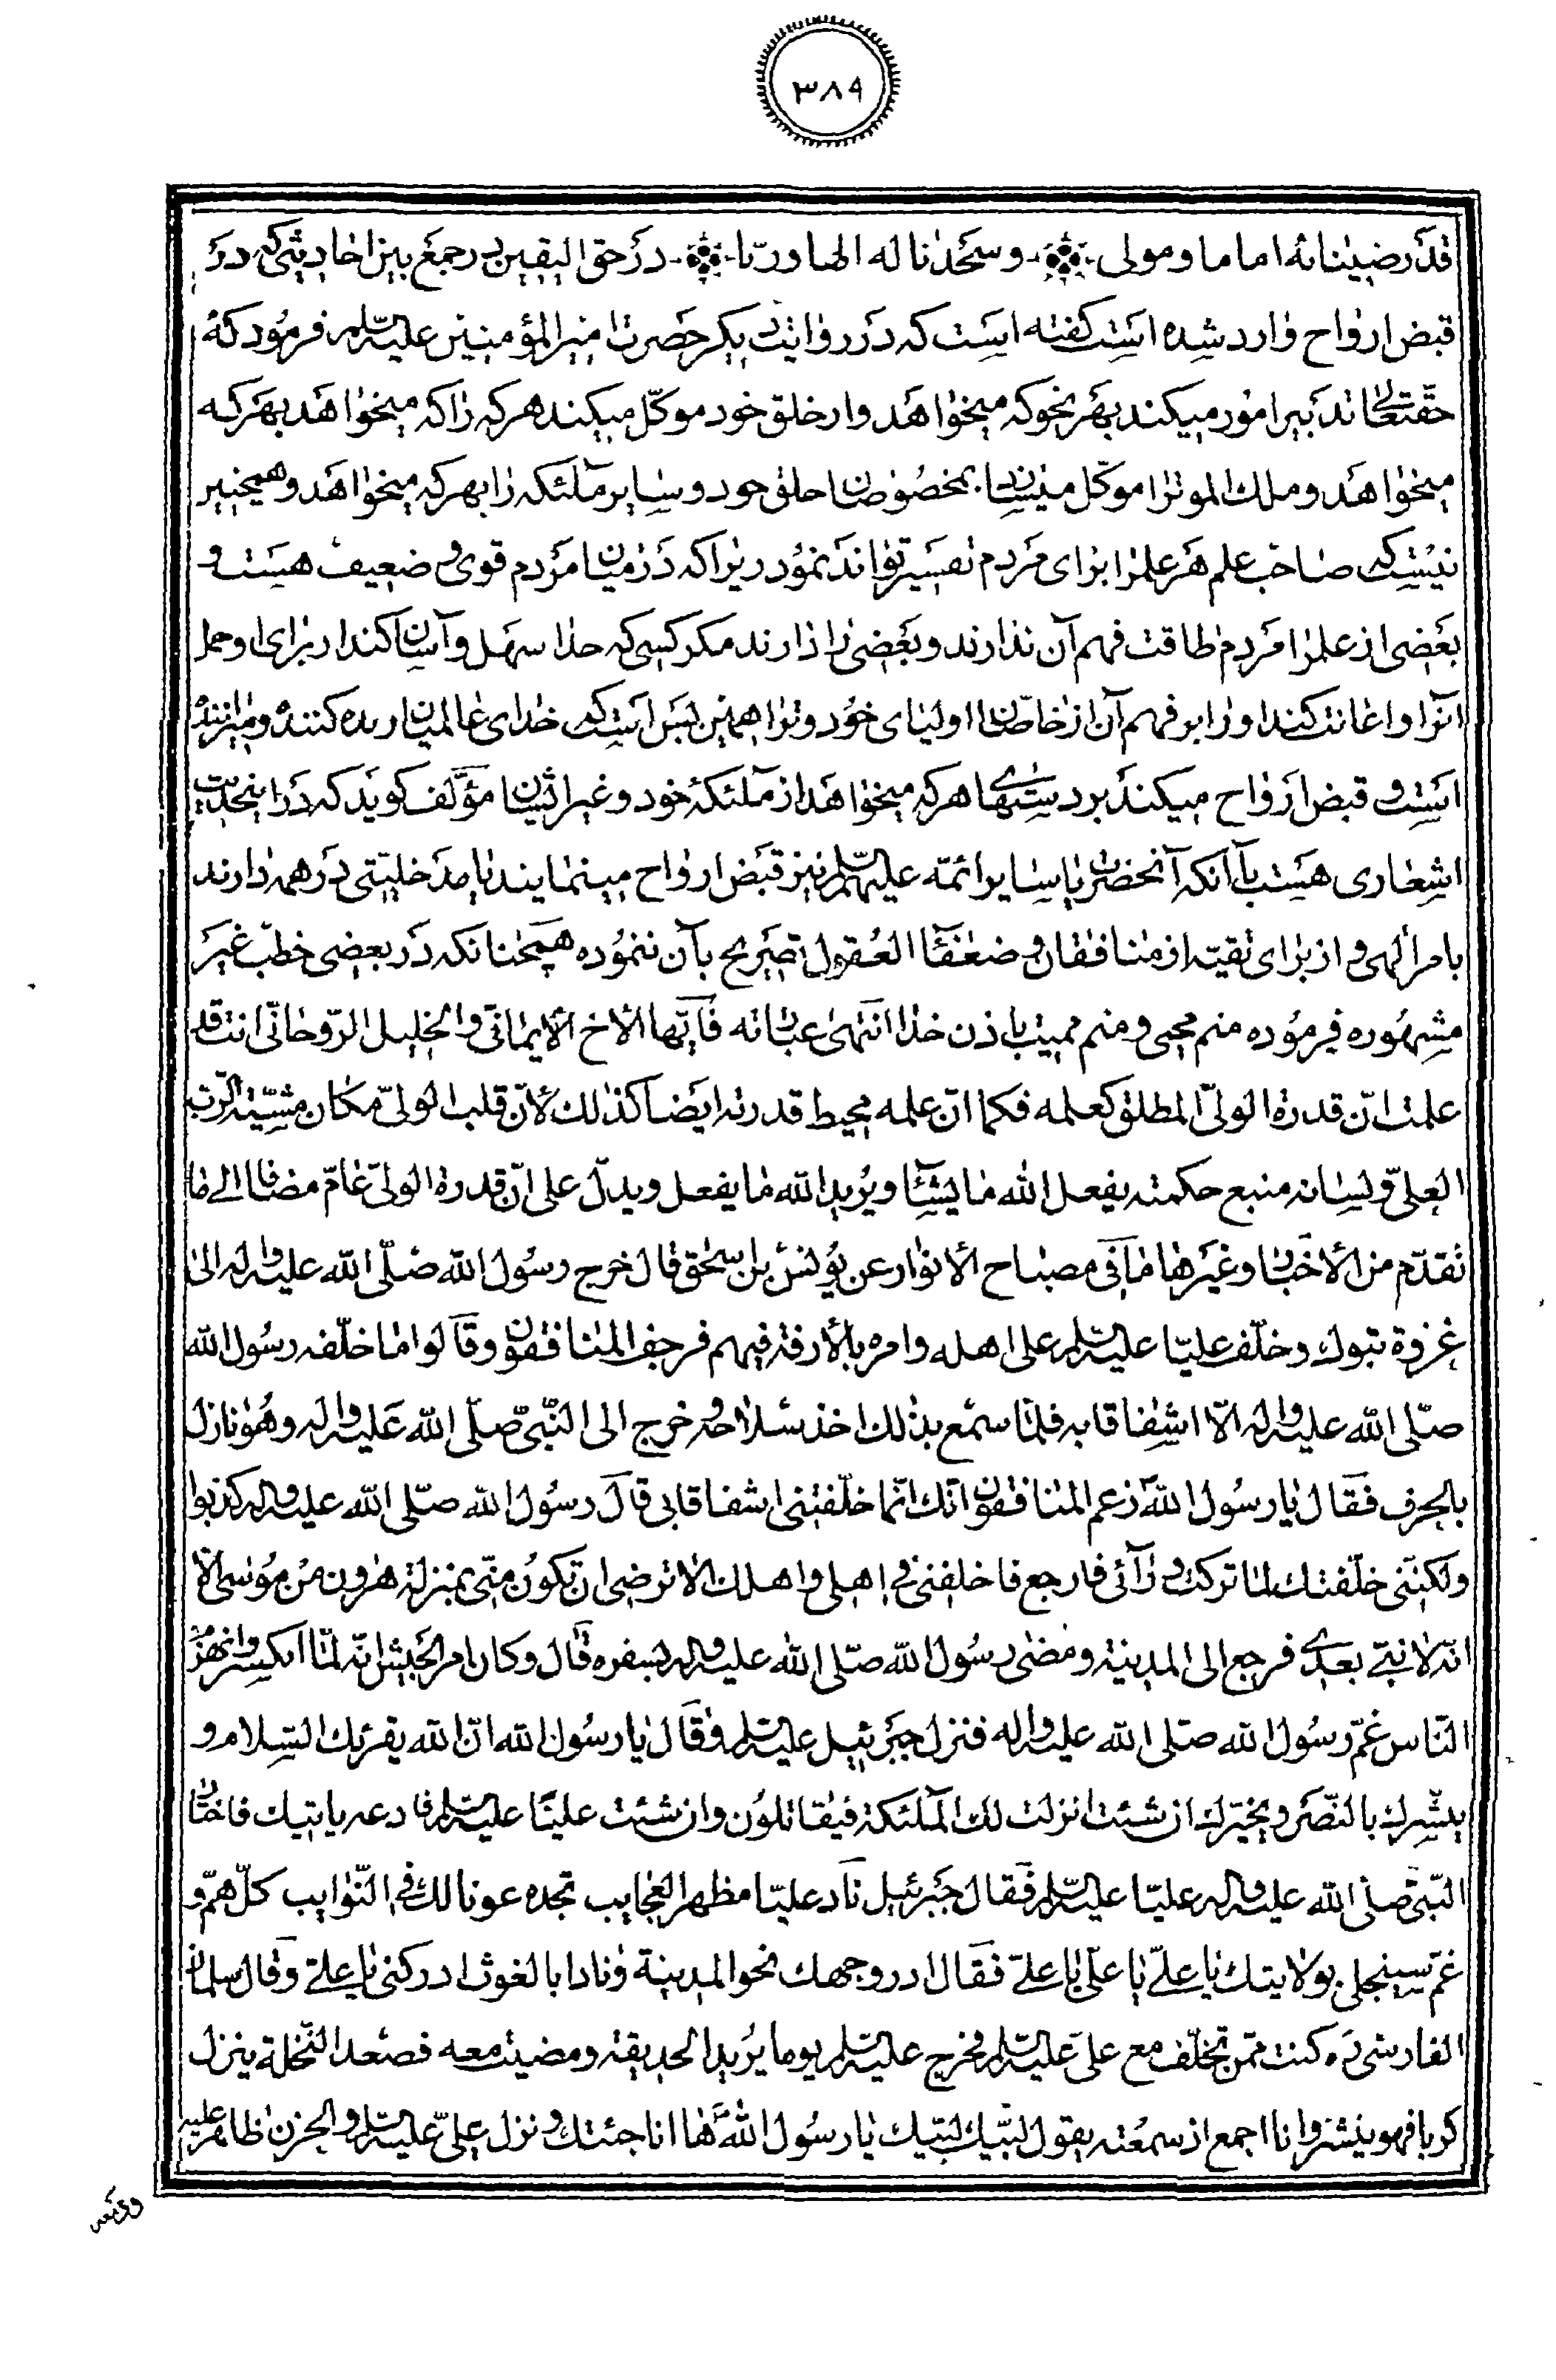 ۳۸۹
قد رضيناه اماما ومولى وسجدنا له الها وربّا در حق اليقين در جمع بين احاديثى كه در
قبض ارواح وارد شده است گفته است كه در روايت ديگر حضرت امير المؤمنين عليه السّلم فرمود كه
حقتعالى تدبير امور ميكند بهر نحو كه ميخواهد و از خلق خود موكّل ميكند هر كه را كه ميخواهد بهر كه
ميخواهد و ملك الموترا موكّل ميسازد بمخصوصان خلق خود و ساير ملئكه را بهر كه ميخواهد و همچنين
نيست كه صاحب علم هر علمرا براى مردم تفسير تواند نمود زيرا كه در ميان مردم قوى و ضعيف هست و
بعضى از علمرا مردم طاقت فهم آن ندارند و بعضى را دارند مكر كسى كه خدا سهل و آسان كند از براى او حمل
آنرا و اعانت كند او را بر فهم آن از خاصّان اولياى خود و ترا همين بس است كه خداى عالميان زنده كننده و ميراننده
است و قبض ارواح ميكند بر دستهاى هر كه ميخواهد از ملئكهٔ خود و غير ايشان مؤلّف گويد كه در اينحديث
اشعارى هست بآنكه آنحضرت با ساير ائمّه عليهم السّلم نيز قبض ارواح مينمايند يا مدخليّتى در همه دارند
بامر الهى و از براى تقيّه از منافقان و ضعفآء العقول تصريح بآن ننموده همچنانكه در بعضى خطب غير
مشهوره فرموده منم محيى و منم مميت باذن خدا انتهى عباراته فايّها الاخ الايمانىّ والخليل الرّوحانىّ انت قد
علمت انّ قدرة الولىّ المطلق كعلمه فكما انّ علمه محيط قدرته ايضا كذلك لانّ قلب الولىّ مكان مشيّة الرّب
العلىّ ولسانه منبع حكمته يفعل الله ما يشآء ويريد الله ما يفعل ويدلّ على انّ قدرة الولىّ عامّ مضافا الى ما
تقدّم من الاخبار وغيرها ما فى مصباح الانوار عن يونس بن اسحق قال خرج رسول الله صلّى الله عليه واله الى
غزوة تبوك وخلّف عليّا عليه السّلم على اهله وامره بالارفة فيهم فرجف المنافقون وقالوا ما خلّفه رسول الله
صلّى الله عليه واله الّا اشفاقا به فلمّا سمع بذلك اخذ سلاحه وخرج الى النّبىّ صلّى الله عليه واله وهو نازل
بالجرف فقال يا رسول الله زعم المنافقون انّك انّما خلّفتنى اشفاقا بى قال رسول الله صلّى الله عليه واله كذبوا
ولكنّنى خلّفتك لما تركت ورآئى فارجع فاخلفنى فى اهلى واهلك الا ترضى ان تكون منّى بمنزلة هرون من موسى الّا
انّه لا نبىّ بعدى فرجع الى المدينة ومضى رسول الله صلّى الله عليه واله لسفره قال وكان امر الجيش انّه لمّا انكسر وانهزم
النّاس غمّ رسول الله صلّى الله عليه واله فنزل جبرئيل عليه السّلم وقال يا رسول الله انّ الله يقرئك السّلام و
يبشّرك بالنّصر ويخيّرك ان شئت انزلت لك الملئكة فيقاتلون وان شئت عليّا عليه السّلم فادعه ياتيك فاختار
النّبىّ صلّى الله عليه واله عليّا عليه السّلم فقال جبرئيل ناد عليّا مظهر العجايب تجده عونا لك فى النّوايب كلّ همّ و
غمّ سينجلى بولايتك يا علىّ يا علىّ يا علىّ فقال ادر وجهك نحو المدينة ونادا بالغوث ادركنى يا علىّ وقال سلمان
الفارسى ره كنت ممّن تخلّف مع علىّ عليه السّلم فخرج عليه السّلم يوما يريد الحديقة ومضيت معه فصعد النّخلة ينزل
كربا فهو ينثر وانا اجمع اذ سمعته يقول لبّيك لبّيك يا رسول الله ها انا جئتك ونزل علىّ عليه السّلم والحزن ظاهر عليه